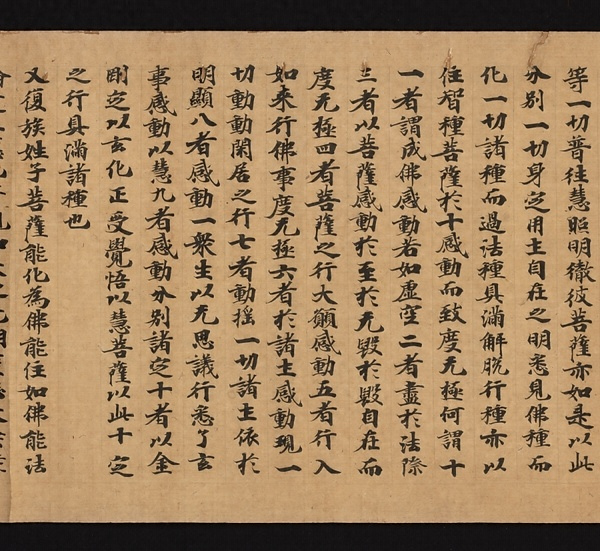 等一切普往慧照明徹彼菩薩亦如是以此
分别一切身定用主自在之明悉見佛種而
化一切諸種而過法種具滿解脫行種亦以
住智種菩薩於十感動而致度无極何謂十
一者謂成佛感動若如虛空二者盡於法際
三者以菩薩感動於至於无毀於毀自在而
度无極四者菩薩之行大願感動五者行入
如来行佛事度无極六者於諸主感動現一
切動動閑居之行七者動搖一切諸主依於
明顯八者感動一衆生以无思議行悉了玄
事感動以慧九者感動分别諸定十者以金
剛定以玄化正受覺悟以慧菩薩以此十定
之行具滿諸種也
又復族姓子菩薩能化為佛能住如佛能法